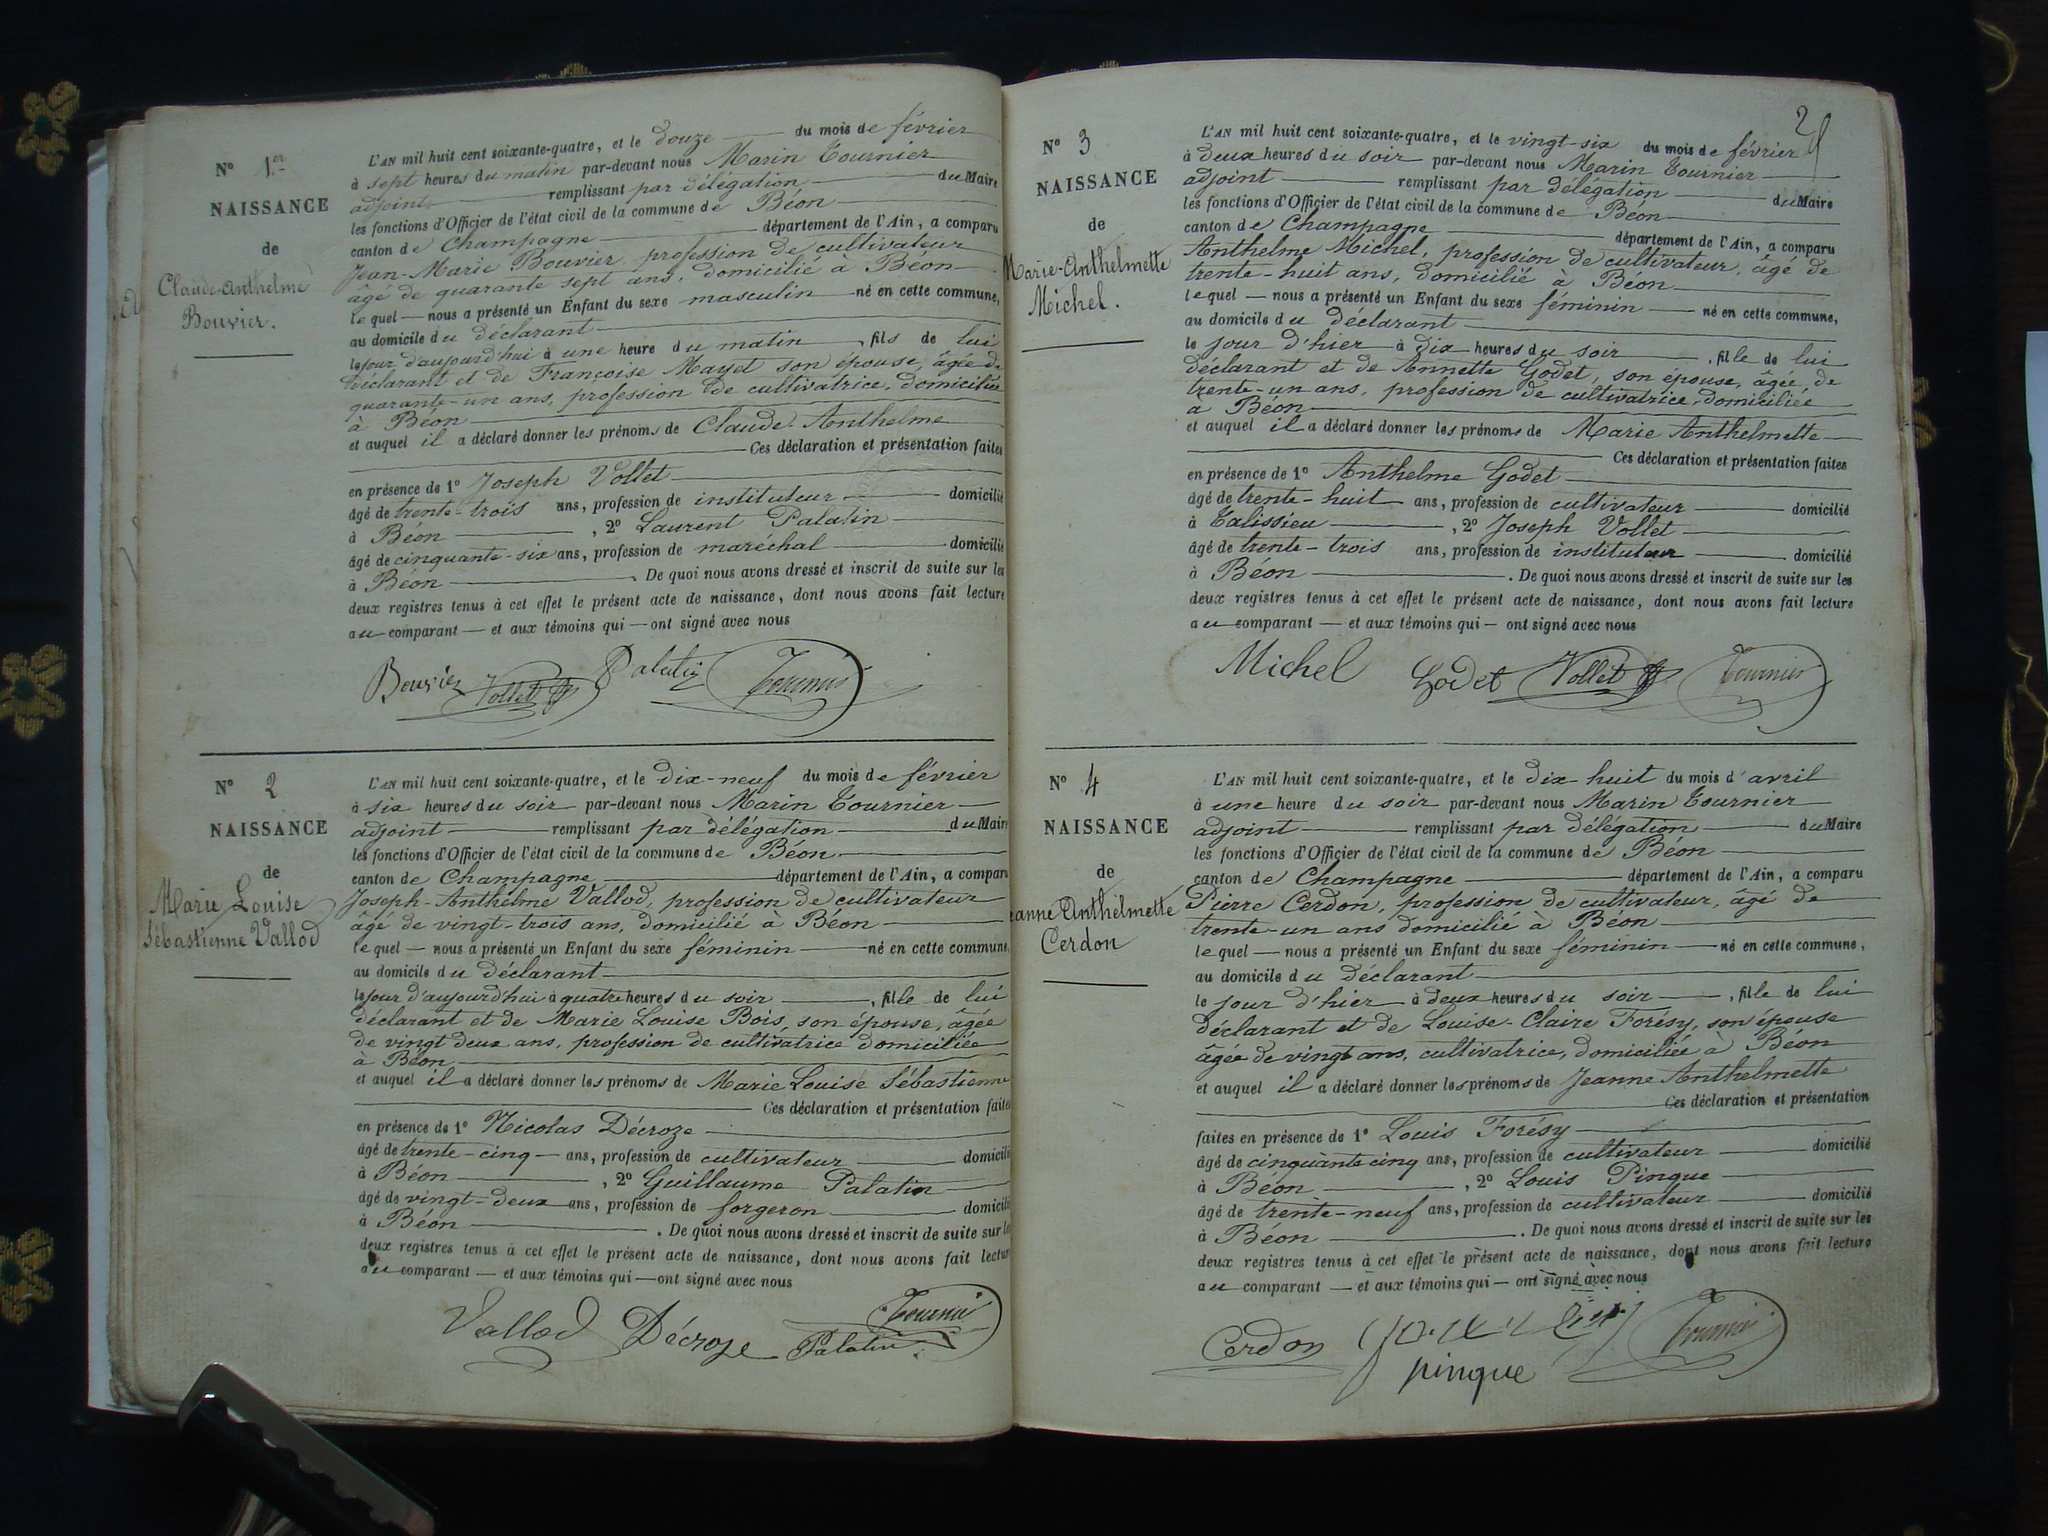 N° 1.er
NAISSANCE
de
Claude-Anthelme
Bouvier.
L'AN mil huit cent soixante-quatre, et le douze du mois de février
à sept heures du matin par-devant nous Marin Tournier
adjoint remplissant par délégation du Maire
les fonctions d'Officier de l'état civil de la commune de Béon
canton de Champagne département de l'Ain, a comparu
Jean-Marie Bouvier profession de cultivateur
âgé de quarante sept ans, domicilié à Béon
lequel — nous a présenté un Enfant du sexe masculin né en cette commune,
au domicile du déclarant
le jour d'aujourd'hui à une heure du matin, fils de lui
déclarant et de Françoise Mayet son épouse, âgée de
quarante-un ans, profession de cultivatrice, domiciliée
à Béon
et auquel il a déclaré donner les prénoms de Claude Anthelme
Ces déclaration et présentation faites
en présence de 1° Joseph Vollet
âgé de trente-trois ans, profession de instituteur domicilié
à Béon, 2° Laurent Palatin
âgé de cinquante-six ans, profession de maréchal domicilié
à Béon. De quoi nous avons dressé et inscrit de suite sur les
deux registres tenus à cet effet le présent acte de naissance, dont nous avons fait lecture
au comparant — et aux témoins qui — ont signé avec nous
Bouvier Vollet Palatin Tournier
N° 2
NAISSANCE
de
Marie Louise
Sébastienne Vallod
L'AN mil huit cent soixante-quatre, et le dix-neuf du mois de février
à six heures du soir par-devant nous Marin Tournier
adjoint remplissant par délégation du Maire
les fonctions d'Officier de l'état civil de la commune de Béon
canton de Champagne département de l'Ain, a comparu
Joseph-Anthelme Vallod, profession de cultivateur
âgé de vingt-trois ans, domicilié à Béon
lequel — nous a présenté un Enfant du sexe féminin né en cette commune,
au domicile du déclarant
le jour d'aujourd'hui à quatre heures du soir, fille de lui
déclarant et de Marie Louise Bois, son épouse, âgée
de vingt deux ans, profession de cultivatrice domiciliée
à Béon
et auquel il a déclaré donner les prénoms de Marie Louise Sébastienne
Ces déclaration et présentation faites
en présence de 1° Nicolas Décroze
âgé de trente-cinq ans, profession de cultivateur domicilié
à Béon, 2° Guillaume Palatin
âgé de vingt-deux ans, profession de forgeron domicilié
à Béon. De quoi nous avons dressé et inscrit de suite sur les
deux registres tenus à cet effet le présent acte de naissance, dont nous avons fait lecture
au comparant — et aux témoins qui — ont signé avec nous
Vallod Décroze Palatin Tournier
2
N° 3
NAISSANCE
de
Marie-Anthelmette
Michel.
L'AN mil huit cent soixante-quatre, et le vingt-six du mois de février
à deux heures du soir par-devant nous Marin Tournier
adjoint remplissant par délégation du Maire
les fonctions d'Officier de l'état civil de la commune de Béon
canton de Champagne département de l'Ain, a comparu
Anthelme Michel, profession de cultivateur, âgé de
trente-huit ans, domicilié à Béon
lequel — nous a présenté un Enfant du sexe féminin né en cette commune,
au domicile du déclarant
le jour d'hier à dix heures du soir, fille de lui
déclarant et de Annette Godet, son épouse, âgée de
trente-un ans, profession de cultivatrice, domiciliée
à Béon
et auquel il a déclaré donner les prénoms de Marie Anthelmette
Ces déclaration et présentation faites
en présence de 1° Anthelme Godet
âgé de trente-huit ans, profession de cultivateur domicilié
à Talissieu, 2° Joseph Vollet
âgé de trente-trois ans, profession de instituteur domicilié
à Béon. De quoi nous avons dressé et inscrit de suite sur les
deux registres tenus à cet effet le présent acte de naissance, dont nous avons fait lecture
au comparant — et aux témoins qui — ont signé avec nous
Michel Godet Vollet Tournier
N° 4
NAISSANCE
de
Jeanne Anthelmette
Cerdon
L'AN mil huit cent soixante-quatre, et le dix-huit du mois d'avril
à une heure du soir par-devant nous Marin Tournier
adjoint remplissant par délégation du Maire
les fonctions d'Officier de l'état civil de la commune de Béon
canton de Champagne département de l'Ain, a comparu
Pierre Cerdon, profession de cultivateur, âgé de
trente-un ans domicilié à Béon
lequel — nous a présenté un Enfant du sexe féminin né en cette commune,
au domicile du déclarant
le jour d'hier à deux heures du soir, fille de lui
déclarant et de Louise-Claire Forésy, son épouse
âgée de vingt ans, cultivatrice, domiciliée à Béon
et auquel il a déclaré donner les prénoms de Jeanne Anthelmette
Ces déclaration et présentation
faites en présence de 1° Louis Forésy
âgé de cinquante cinq ans, profession de cultivateur domicilié
à Béon, 2° Louis Pinque
âgé de trente-neuf ans, profession de cultivateur domicilié
à Béon. De quoi nous avons dressé et inscrit de suite sur les
deux registres tenus à cet effet le présent acte de naissance, dont nous avons fait lecture
au comparant — et aux témoins qui — ont signé avec nous
Cerdon Tournier
pinque